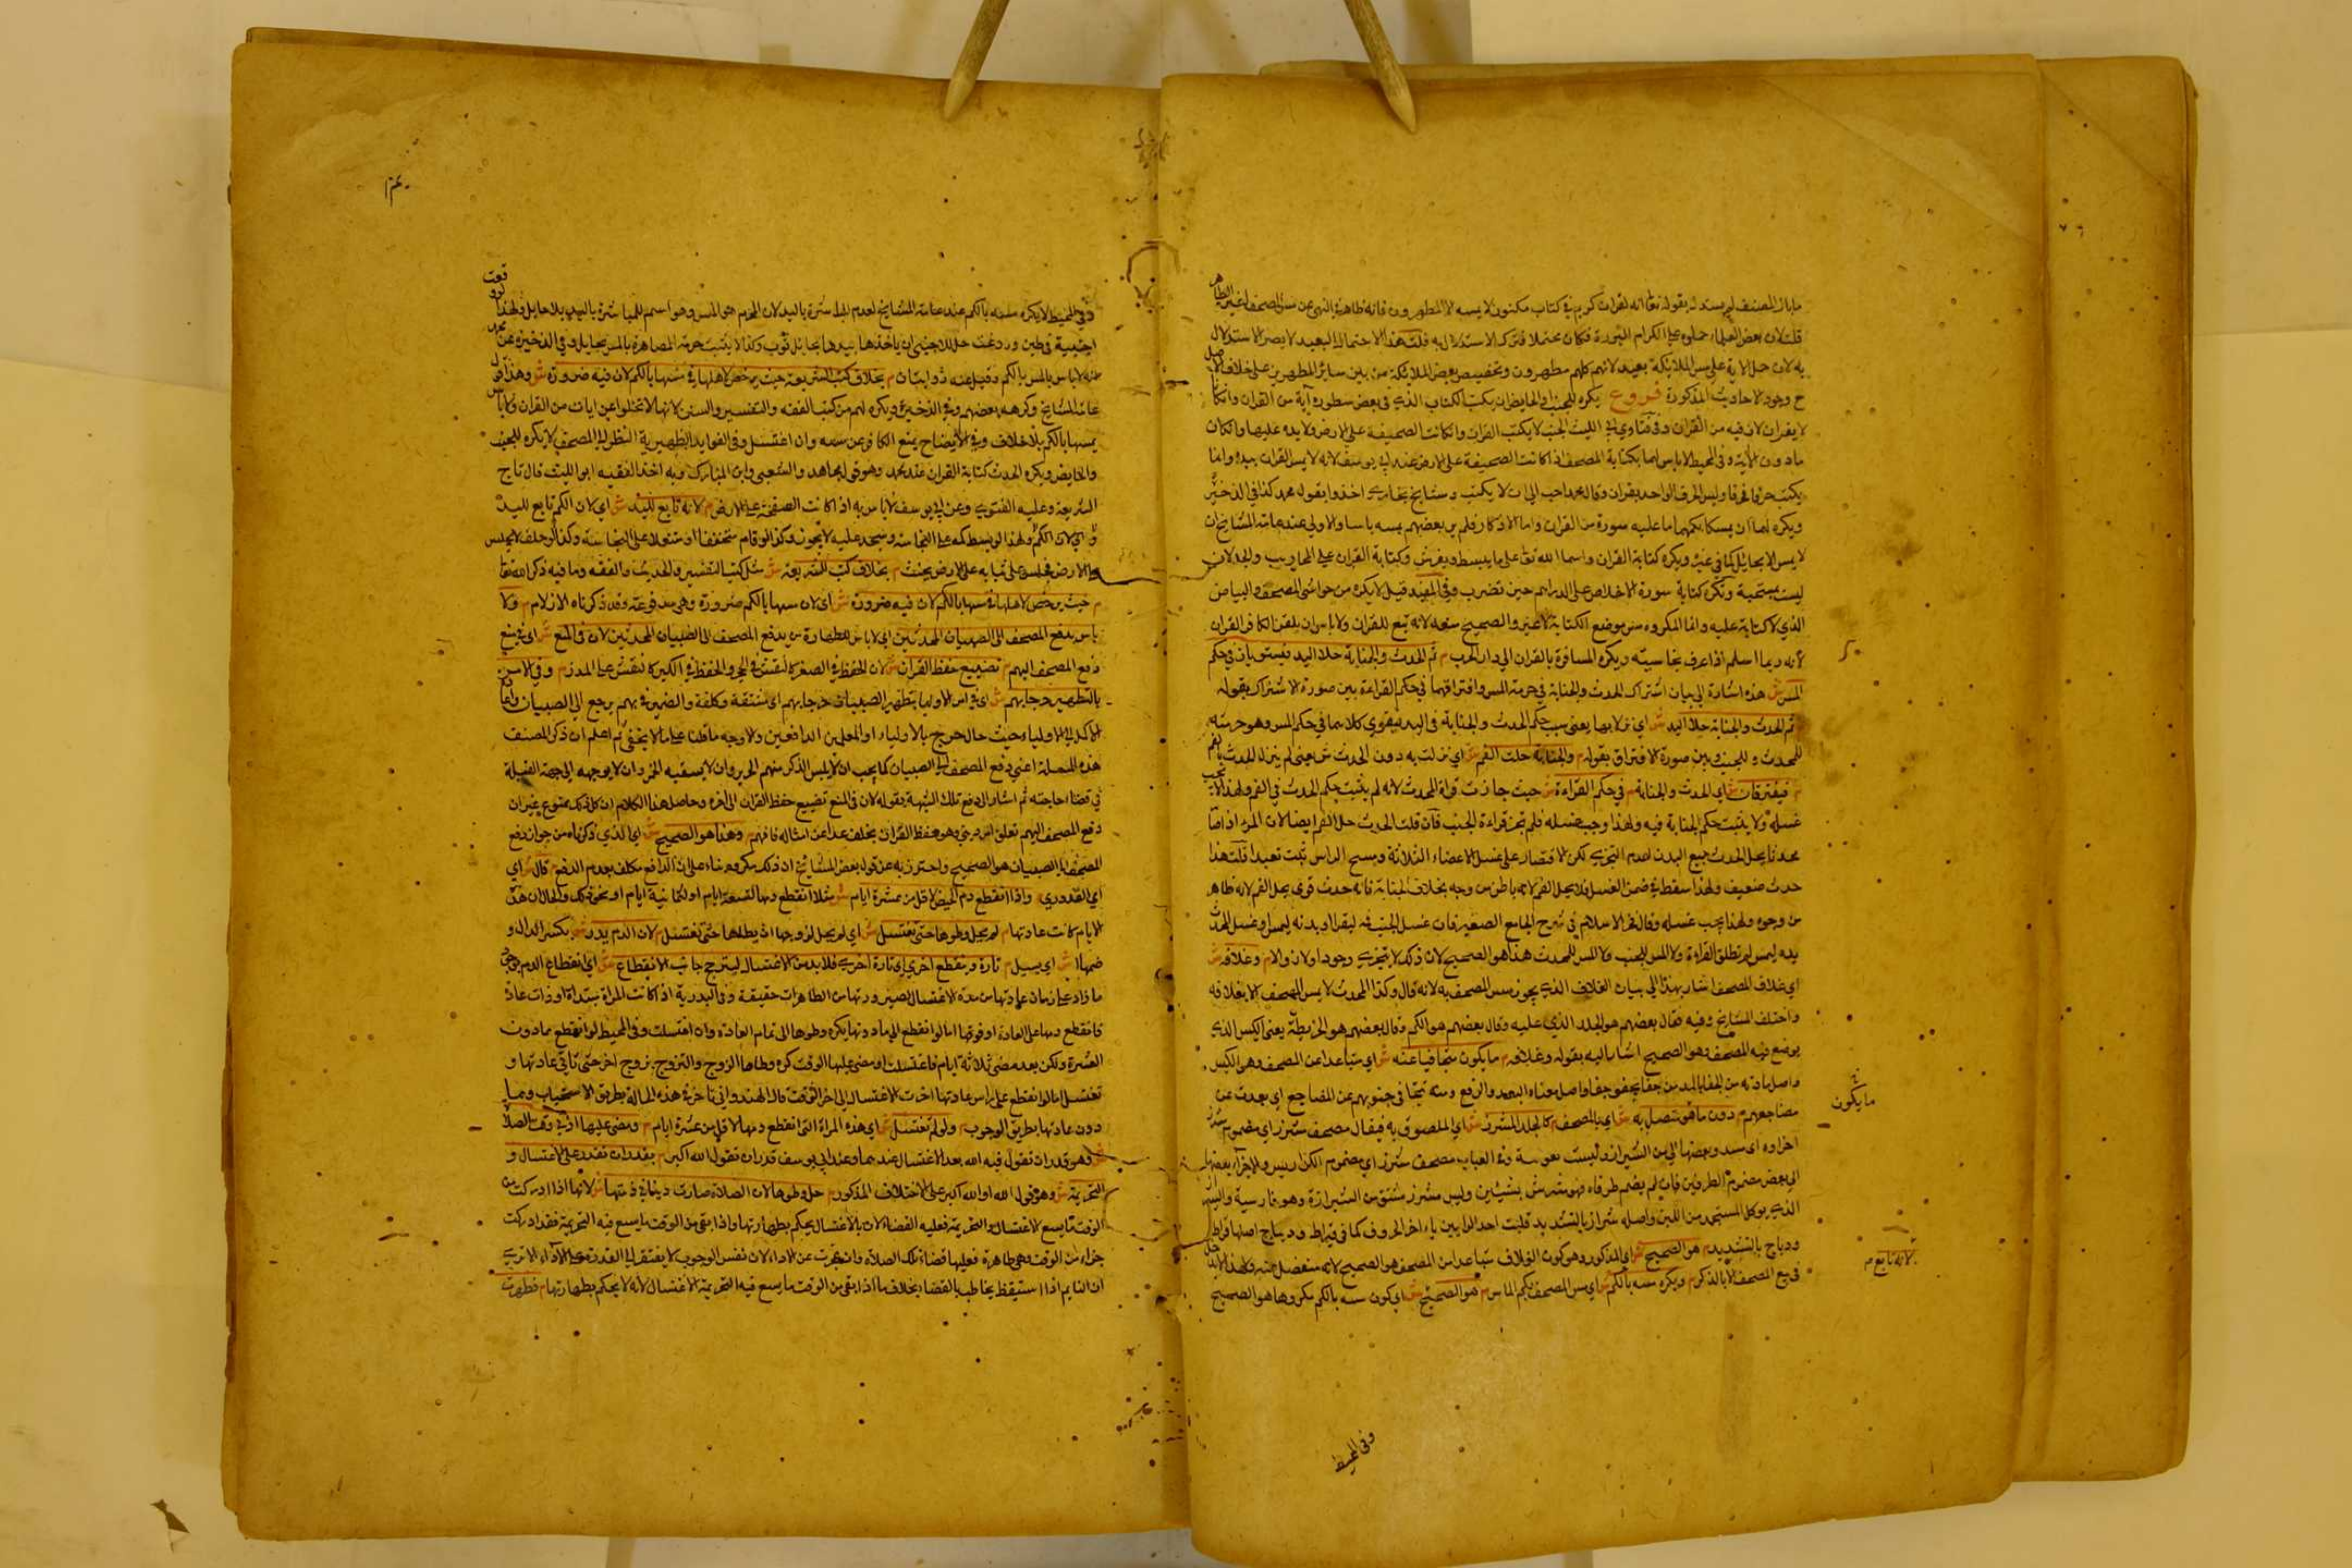 ما بال المصنف لم يستدل بقوله تعالى انه لقران كريم في كتاب مكنون لا يمسه الا المطهرون فانه ظاهر في النهي عن مس المصحف لغير الطاهر
قلت لان بعض العلماء حملوه على الكرام البررة فكان محتملا فترك الاستدلال به قلت هذا الاحتمال البعيد لا يضر الاستدلال
به لان حمل الاية على مس الملائكة بعيد لانهم كلهم مطهرون وتخصيص بعض الملائكة من بين سائر المطهرين على خلاف الاصل
وجود الاحاديث المذكورة فروع يكره للجنب والحايض ان يكتب الكتاب الذي في بعض سطوره آية من القران وان كانا
لا يقران لان فيه من القران وفي فتاوي ابي الليث الجنب لا يكتب القران وان كانت الصحيفة على الارض ولا يده عليها وان كان
ما دون الآية وفي المحيط لا باس لهما بكتابة المصحف اذا كانت الصحيفة على الارض عند ابي يوسف لانه لا يمس القران بيده وانما
يكتب حرفا فحرفا وليس الحرف الواحد بقران وقال محمد احب الي ان لا يكتب ومشايخ بخاري اخذوا بقول محمد كذا في الذخيرة
ويكره لهما ان يمسكا بكمهما ما عليه سورة من القران واما الاذكار فلم ير بعضهم بمسه باسا والاولي عند عامة المشايخ ان
لا يمس الا بحائل كما في غيره ويكره كتابة القران واسماء الله تعالى على ما يبسط ويفرش وكتابة القران على المحاريب والجدران
ليست بمستحبة وتكره كتابة سورة الاخلاص على الدراهم حين تضرب وفي المفيد قيل لا يكره مس حواشي المصحف والبياض
الذي لا كتابة عليه وانما المكروه مس موضع الكتابة لا غير والصحيح منعه لانه تبع للقران ولا باس ان يلقن الكافر القران
لانه ربما اسلم اذا عرف محاسنه ويكره المسافرة بالقران الي دار الحرب م ثم الحدث والجنابة حلا اليد فيستويان في حكم
المس ش هذه اشارة الي بيان اشتراك الحدث والجنابة في حرمة المس وافتراقهما في حكم القراءة بين صورة الاشتراك بقوله
ثم الحدث والجنابة حلا اليد ش اي نزلا بها يعني سبب حكم الحدث والجنابة في اليد فيقوي كلاهما في حكم المس وهو حرمته
للمحدث وللجنب وبين صورة الافتراق بقوله م والجنابة حلت الفم ش اي نزلت به دون الحدث ش يعني لم ينزل الحدث بالفم
م فيفترقان ش اي الحدث والجنابة م في حكم القراءة ش حيث جازت قراة المحدث لانه لم يثبت حكم الحدث في الفم ولهذا لا يجب
غسله ولا يثبت حكم الجنابة فيه ولهذا وجب غسله فلم تجز قراءة الجنب فان قلت الحدث حل الفم ايضا لان المرء اذا صار
محدثا يحل الحدث جميع البدن لعدم التجزي لكن الاقتصار على غسل الاعضاء الثلاثة ومسح الراس ثبت تعبدا قلت هذا
حدث ضعيف ولهذا سقط في ضمن الغسل فلا يحل الفم لانه باطن من وجه بخلاف الجنابة فانه حدث قوي يحل الفم لانه ظاهر
من وجوه ولهذا يجب غسله وقال فخر الاسلام في شرح الجامع الصغير فان غسل الجنب فمه ليقرا او يده ليمس او غسل المحدث
يده ليمس لم تطلق القراءة ولا المس للجنب ولا المس للمحدث هذا هو الصحيح لان ذلك لا يتجزى وجودا ولا زوالا م وغلافه ش
اي غلاف المصحف اشار بهذا الي بيان الغلاف الذي يجوز مس المصحف به لانه قال وكذا المحدث لا يمس المصحف الا بغلافه
واختلف المشايخ فيه فقال بعضهم هو الجلد الذي عليه وقال بعضهم هو الكم وقال بعضهم هو الخريطة يعني الكيس الذي
يوضع فيه المصحف وهو الصحيح اشار اليه بقوله وغلافه م ما يكون متجافيا عنه ش اي متباعدا عن المصحف وهو الكيس
واصل مادته من الجفاء بالمد من جفا يجفو جفا واصل معناه البعد والرفع ومنه تتجافى جنوبهم عن المضاجع اي بعدت عن
مضاجعهم م دون ما هو متصل به ش اي بالمصحف م كالجلد المشرز ش اي الملصوق به فيقال مصحف مشرز اي مضموم
الي بعض مضموم الطرفين فان لم يضم طرفاه فهو مشرس بشينين وليس مشرز مشتق من الشيرازة وهو فارسية
ودباج بالتشديد م هو الصحيح ش اي المذكور وهو كون الغلاف متباعدا من المصحف هو الصحيح
في بيع المصحف الا بالذكر م ويكره مسه بالكم ش اي مس المصحف بكم الماس م هو الصحيح ش اي كون مسه بالكم مكروها هو الصحيح
ما يكون
لانه تابع م
وفي المحيط
وفي المحيط لا يكره مسه بالكم عند عامة المشايخ لعدم المباشرة باليد لان المحرم هو المس وهو اسم للمباشرة باليد بلا حايل ولهذا
عنه لا باس بالمس بالكم وقيل عنه روايتان م بخلاف كتب الشريعة حيث يرخص لاهلها في مسها بالكم لان فيه ضرورة ش وهذا قول
عامة المشايخ وكرهه بعضهم وفي الذخيرة ويكره لهم مس كتب الفقه والتفسير والسنن لانها لا تخلوا عن ايات من القران ولا باس
بمسها بالكم بلا خلاف وفي الايضاح يمنع الكافر عن مسه وان اغتسل وفي الفوايد الظهيرية النظر الي المصحف لا يكره للجنب
والحايض ويكره للمحدث كتابة القران عند محمد وهو قول مجاهد والشعبي وابن المبارك وبه اخذ الفقيه ابو الليث قال تاج
الشريعة وعليه الفتوي وعن ابي يوسف لا باس به اذا كانت الصحيفة على الارض م لانه تابع لليد ش اي لان الكم تابع لليد
اي لان الكم ولهذا لو بسط كمه على النجاسة وسجد عليه لا يجوز وكذا لو قام متخففا او متنعلا على النجاسة وكذا لو حلف لا يجلس
على الارض فجلس على ثيابه على الارض يحنث م بخلاف كتب الشريعة ش مثل كتب التفسير والحديث والفقه وما فيه ذكر الله تعالى
م حيث يرخص لاهلها في مسها بالكم لان فيه ضرورة ش اي لان مسها بالكم ضرورة وهي مدفوعة وقد ذكرناه الان م ولا
باس بدفع المصحف الى الصبيان المحدثين اي لا باس للطهارة من يدفع المصحف الى الصبيان المحدثين لان في المنع ش اي في منع
دفع المصحف اليهم م تضييع حفظ القران ش لان الحفظ في الصغر كالنقش في الحجر والحفظ في الكبر كالنقش على المدر م وفي الامر
بالتطهير حرجا بهم ش اي في امر الاولياء بتطهير الصبيان حرجا بهم اي مشقة وكلفة والضمير في بهم يرجع الي الصبيان
هذه المسئلة اعني دفع المصحف الي الصبيان كما يجب ان لا يلبس الذكر منهم الحرير وان لا يسقيه الخمر وان لا يوجهه الي جهة القبلة
في قضاء حاجته ثم اشار الي دفع تلك الشبهة بقوله لان في المنع تضييع حفظ القران الى اخره وحاصل هذا الكلام ان كل ذلك ممنوع غير ان
دفع المصحف اليهم تعلق امر ديني وهو حفظ القران بخلف عداه من امثاله فافهم م وهذا هو الصحيح ش اي الذي ذكرناه من جواز دفع
المصحف الي الصبيان هو الصحيح واحترز به عن قول بعض المشايخ ان ذلك مكروه بناء على ان الدافع مكلف بعدم الدفع م قال ش اي
اي القدوري م واذا انقطع دم الحيض لاقل من عشرة ايام ش مثلا انقطع دمها لتسعة ايام او لثمانية ايام او نحو ذلك والحال ان هذه
الايام كانت عادتها م لم يحل وطوها حتى تغتسل ش اي لم يحل لزوجها ان يطاها حتى تغتسل م لان الدم يدر ش بكسر الدال و
ضمها ش اي يسيل م تارة وينقطع اخري اي تارة اخري فلا بد من الاغتسال ليترجح جانب الانقطاع ش اي انقطاع الدم
ما زاد على زمان عادتها من مدة الاغتسال لصيرورتها من الطاهرات حقيقة وفي البدرية اذا كانت المراة مبتداة او ذات عادة
فانقطع دمها على العادة او فوقها اما لو انقطع الي ما دونها يكره وطوها الى تمام العادة وان اغتسلت وفي المحيط لو انقطع بما دون
العشرة ولكن بعد مضي ثلاثة ايام فاغتسلت او مضى عليها الوقت كره وطاها الزوج والتزوج بزوج اخر حتى تاتي عادتها و
تغتسل اما لو انقطع على راس عادتها اخرت الاغتسال الى اخر الوقت قال الهندواني تاخره في هذه الحالة بطريق الاستحباب وفيما
دون عادتها بطريق الوجوب م ولو لم تغتسل ش اي هذه المراة التي انقطع دمها لاقل من عشرة ايام م ومضى عليها ادنى وقت الصلاة
ش وهو قدر ان تقول فيه الله بعد الاغتسال عندهما وعند ابي يوسف قدر ان تقول الله اكبر م بقدر ان تقدر على الاغتسال و
التحريمة ش وهو قول الله او الله اكبر على الاختلاف المذكور م حل وطوها لان الصلاة صارت دينا في ذمتها ش لانها اذا ادركت من
الوقت ما يسع الاغتسال والتحريمة فعليه القضاء لان بالاغتسال يحكم بطهارتها واذا بقي من الوقت ما يسع فيه التحريمة فقد ادركت
جزاء من الوقت وهي طاهرة فعليها قضاء تلك الصلاة وان عجزت عن الاداء لان نفس الوجوب لا يفتقر الي القدرة على الاداء الا تري
ان النايم اذا استيقظ يخاطب بالقضا بخلاف ما اذا بقي من الوقت ما يسع فيه التحريمة الاغتسال لانه لا يحكم بطهارتها م فطهرت